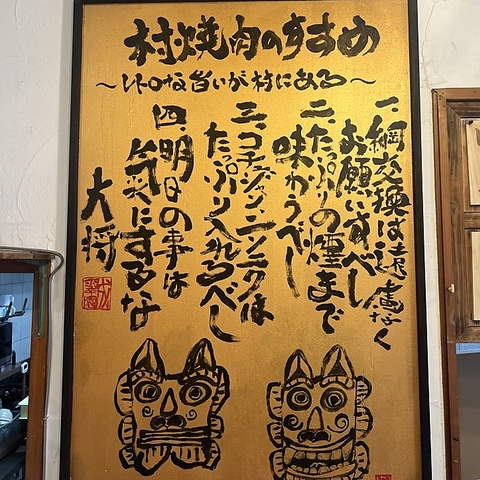 村焼肉のすすめ
〜レトロな占いが村にある〜
一、網交換は遠慮なく
お願いすべし
二、たっぷりの煙まで
味わうべし
三、コチジャン、ニンニクは
たっぷり入れるべし
四、明日の事は
気にするな
大将